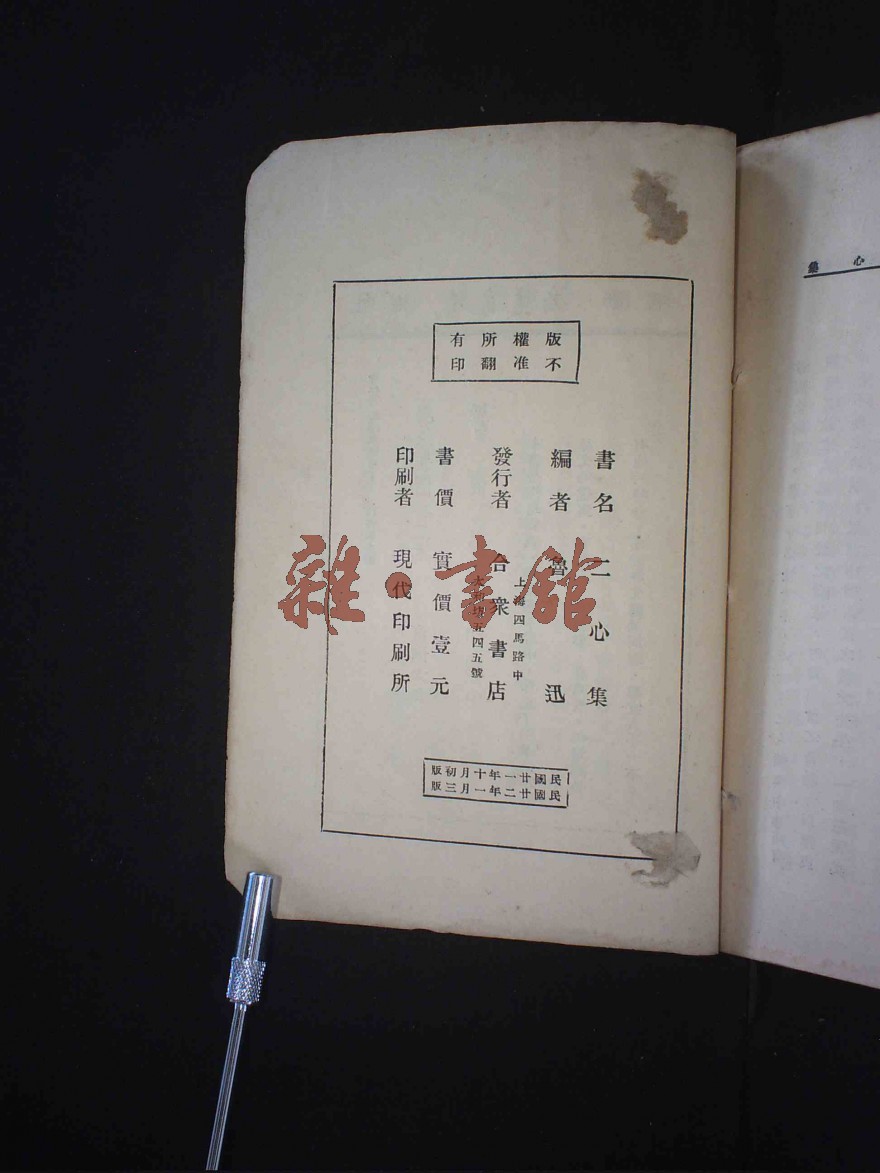 版權所有
不准翻印
書名 二心集
編者 魯迅
發行者 合衆書店
上海四馬路中
五四五號
書價 實價壹元
印刷者 現代印刷所
民國廿一年十月初版
民國廿二年一月三版
心集
雜·書館